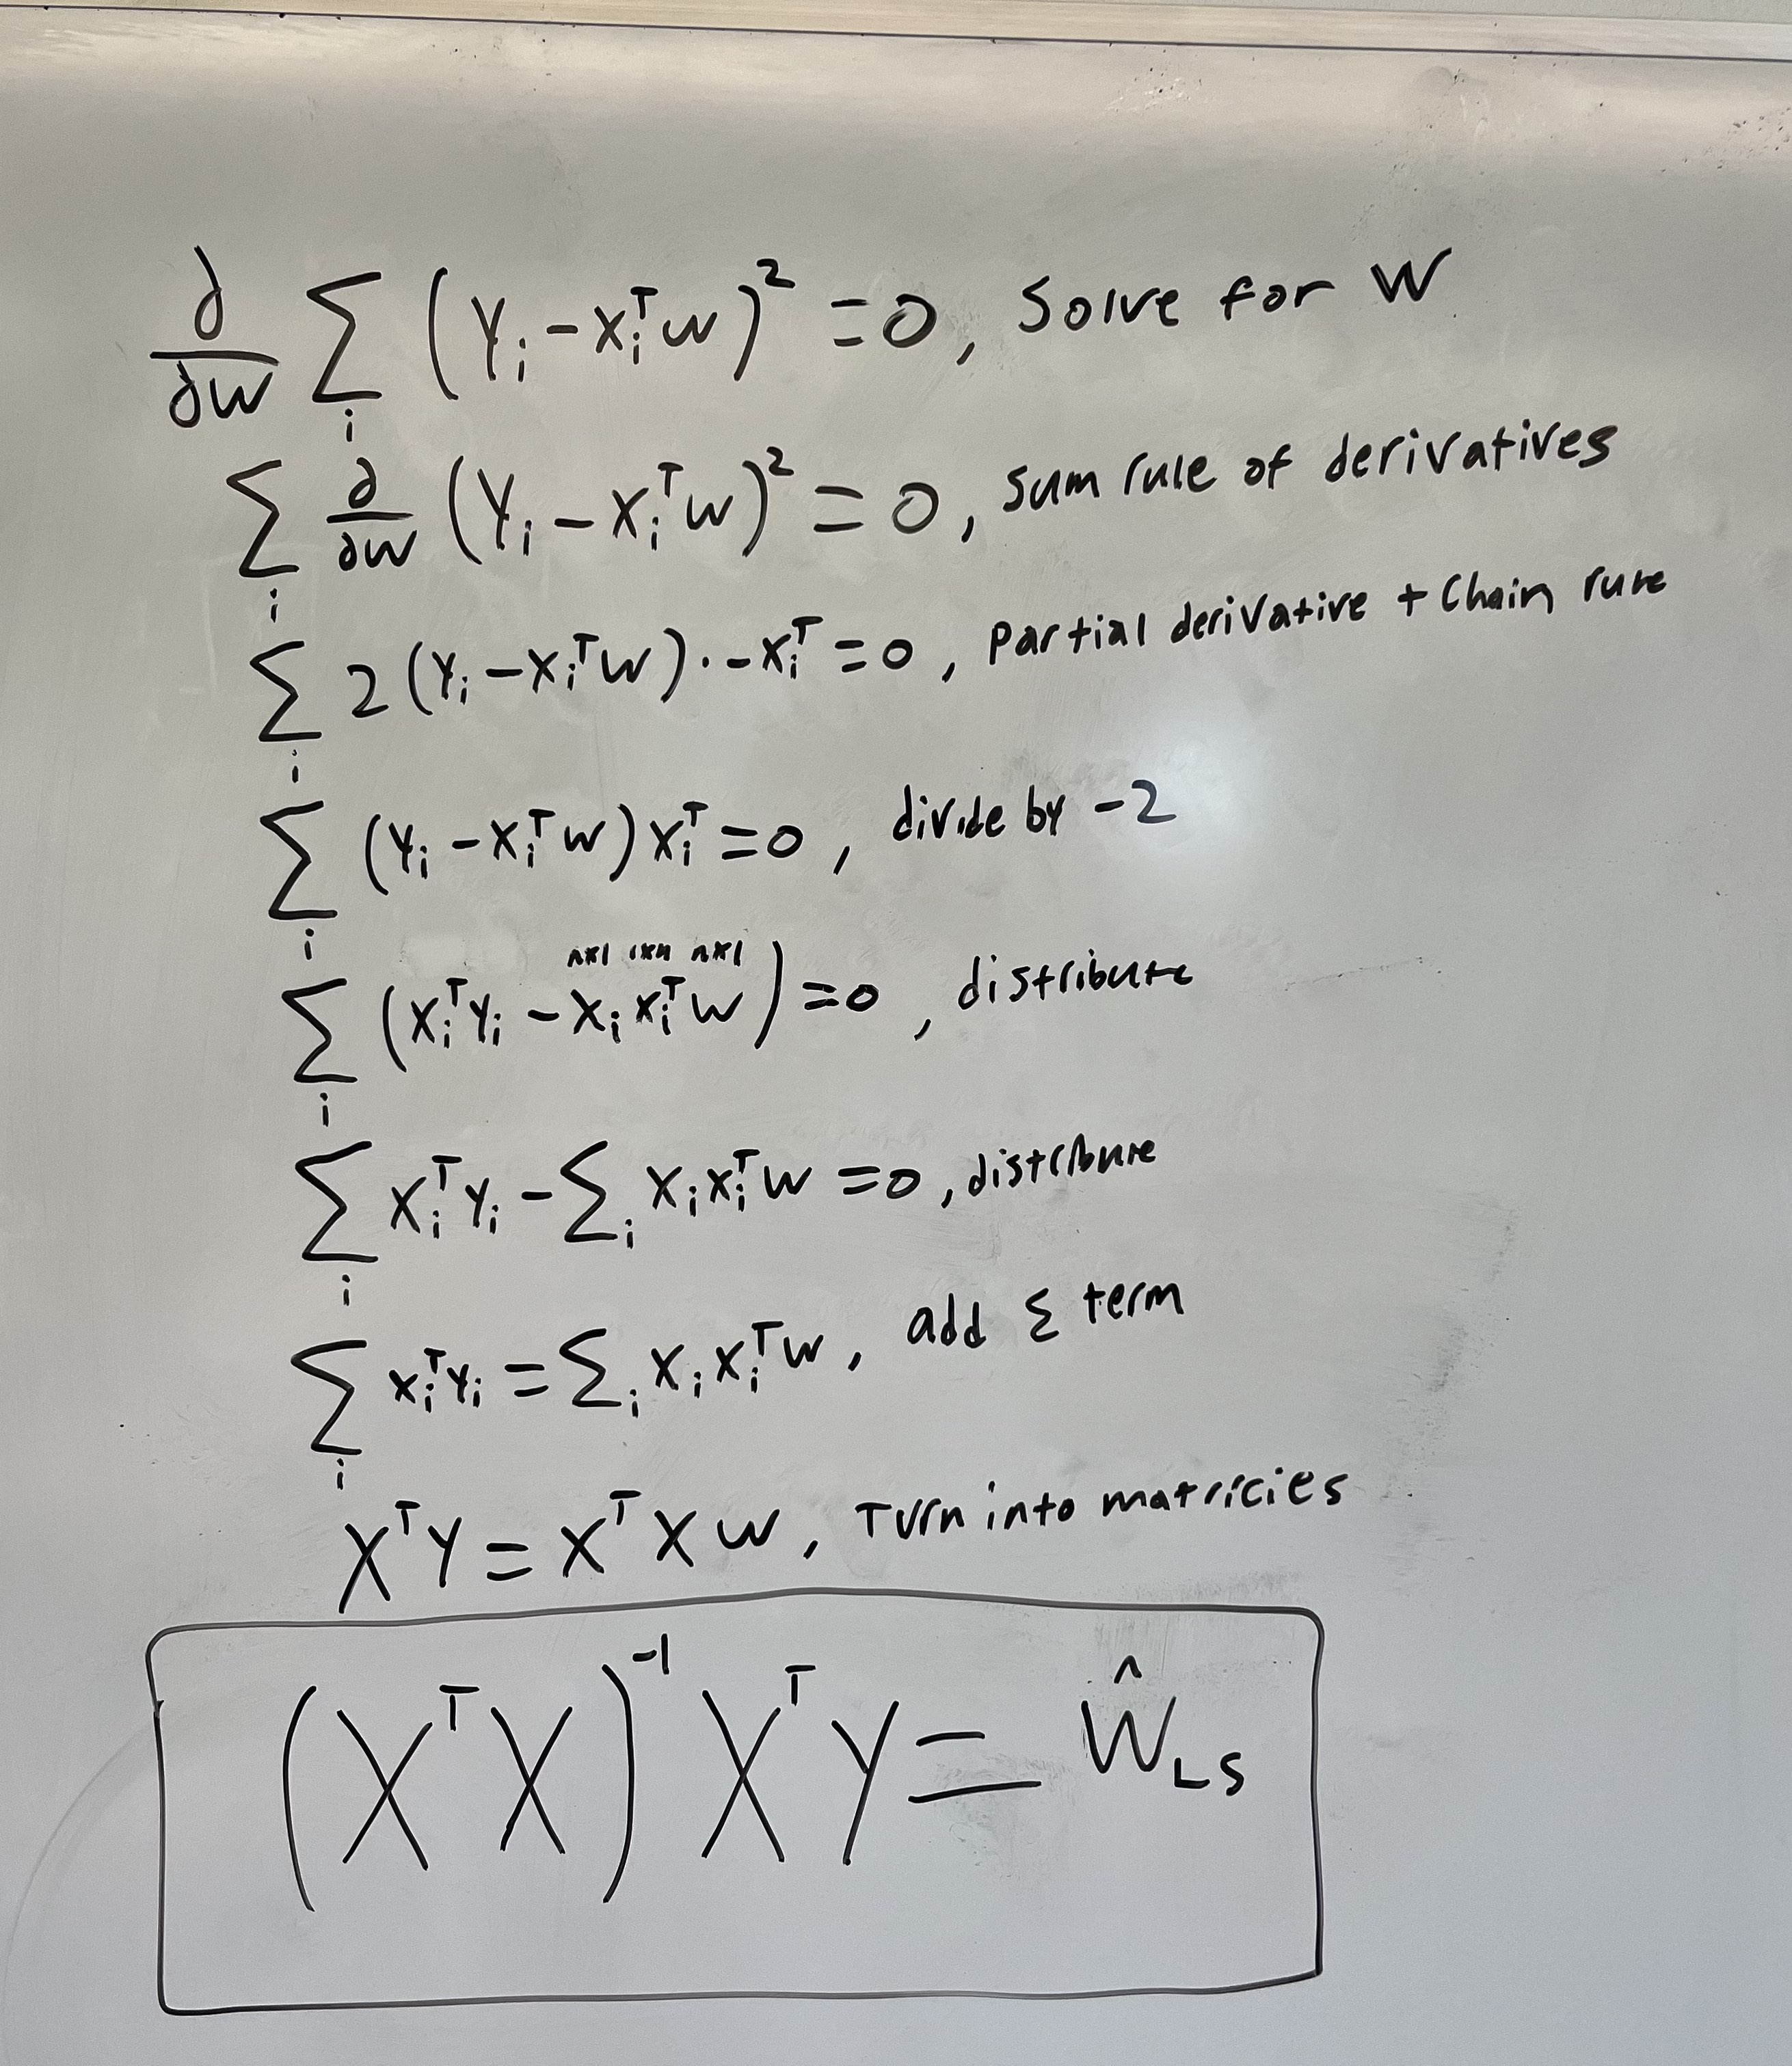 ∂/∂w Σ_i (Y_i - X_i^T w)^2 = 0, Solve for W
Σ_i ∂/∂w (Y_i - X_i^T w)^2 = 0, sum rule of derivatives
Σ_i 2(Y_i - X_i^T w) · -X_i^T = 0, Partial derivative + Chain rule
Σ_i (Y_i - X_i^T w) X_i^T = 0, divide by -2
nx1 1xn nx1
Σ_i (X_i^T Y_i - X_i X_i^T w) = 0, distribute
Σ_i X_i^T Y_i - Σ_i X_i X_i^T w = 0, distribute
Σ_i X_i^T Y_i = Σ_i X_i X_i^T w, add Σ term
X^T Y = X^T X w, Turn into matricies
(X^T X)^-1 X^T Y = Ŵ_LS